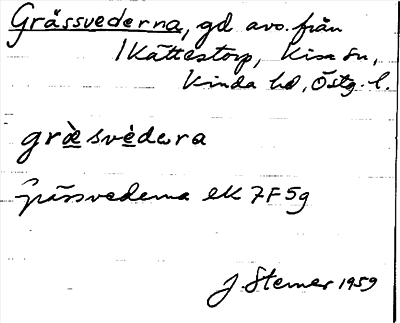 Grässvederna, gd avs. från
Kättestorp, Kisa sn,
Kinda hd, Östg. l.
græ̀svèdɯra
Grässvederna ek 7F5g
J. Sterner 1959